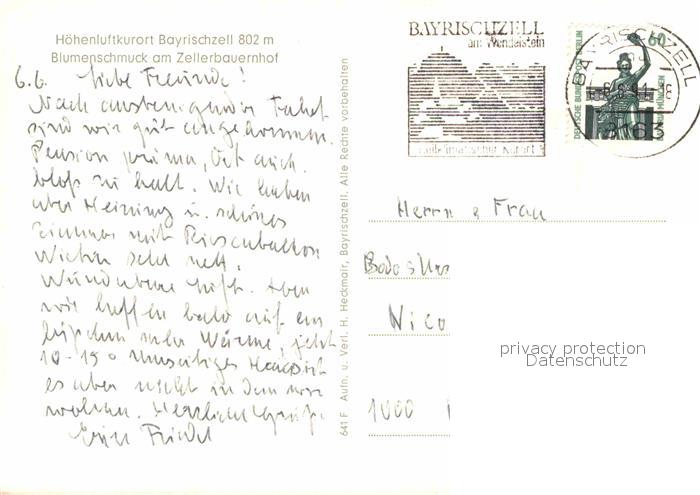 Höhenluftkurort Bayrischzell 802 m
Blumenschmuck am Zellerbauernhof
6.6. Liebe Freunde!
Nach anstrengender Fahrt
sind wir gut angekommen.
Pension prima, Ort auch.
bloß zu kalt. Wir haben
aber Heizung u. schönes
Zimmer mit Riesenbalkon
Wirtin sehr nett.
Wunderbare Luft. Aber
wir hoffen bald auf ein
bißchen mehr Wärme, jetzt
10-15°
es aber nicht in dem wir
wohnen. Herzliche Grüße
Friedel
641 F Aufn. u. Verl. H. Heckmair, Bayrischzell. Alle Rechte vorbehalten
BAYRISCHZELL
am Wendelstein
heilklimatischer Kurort
BAYRISCHZELL
8163
60
DEUTSCHE BUNDESPOST BERLIN
MÜNCHEN
Herrn & Frau
Nico
1000
privacy protection
Datenschutz